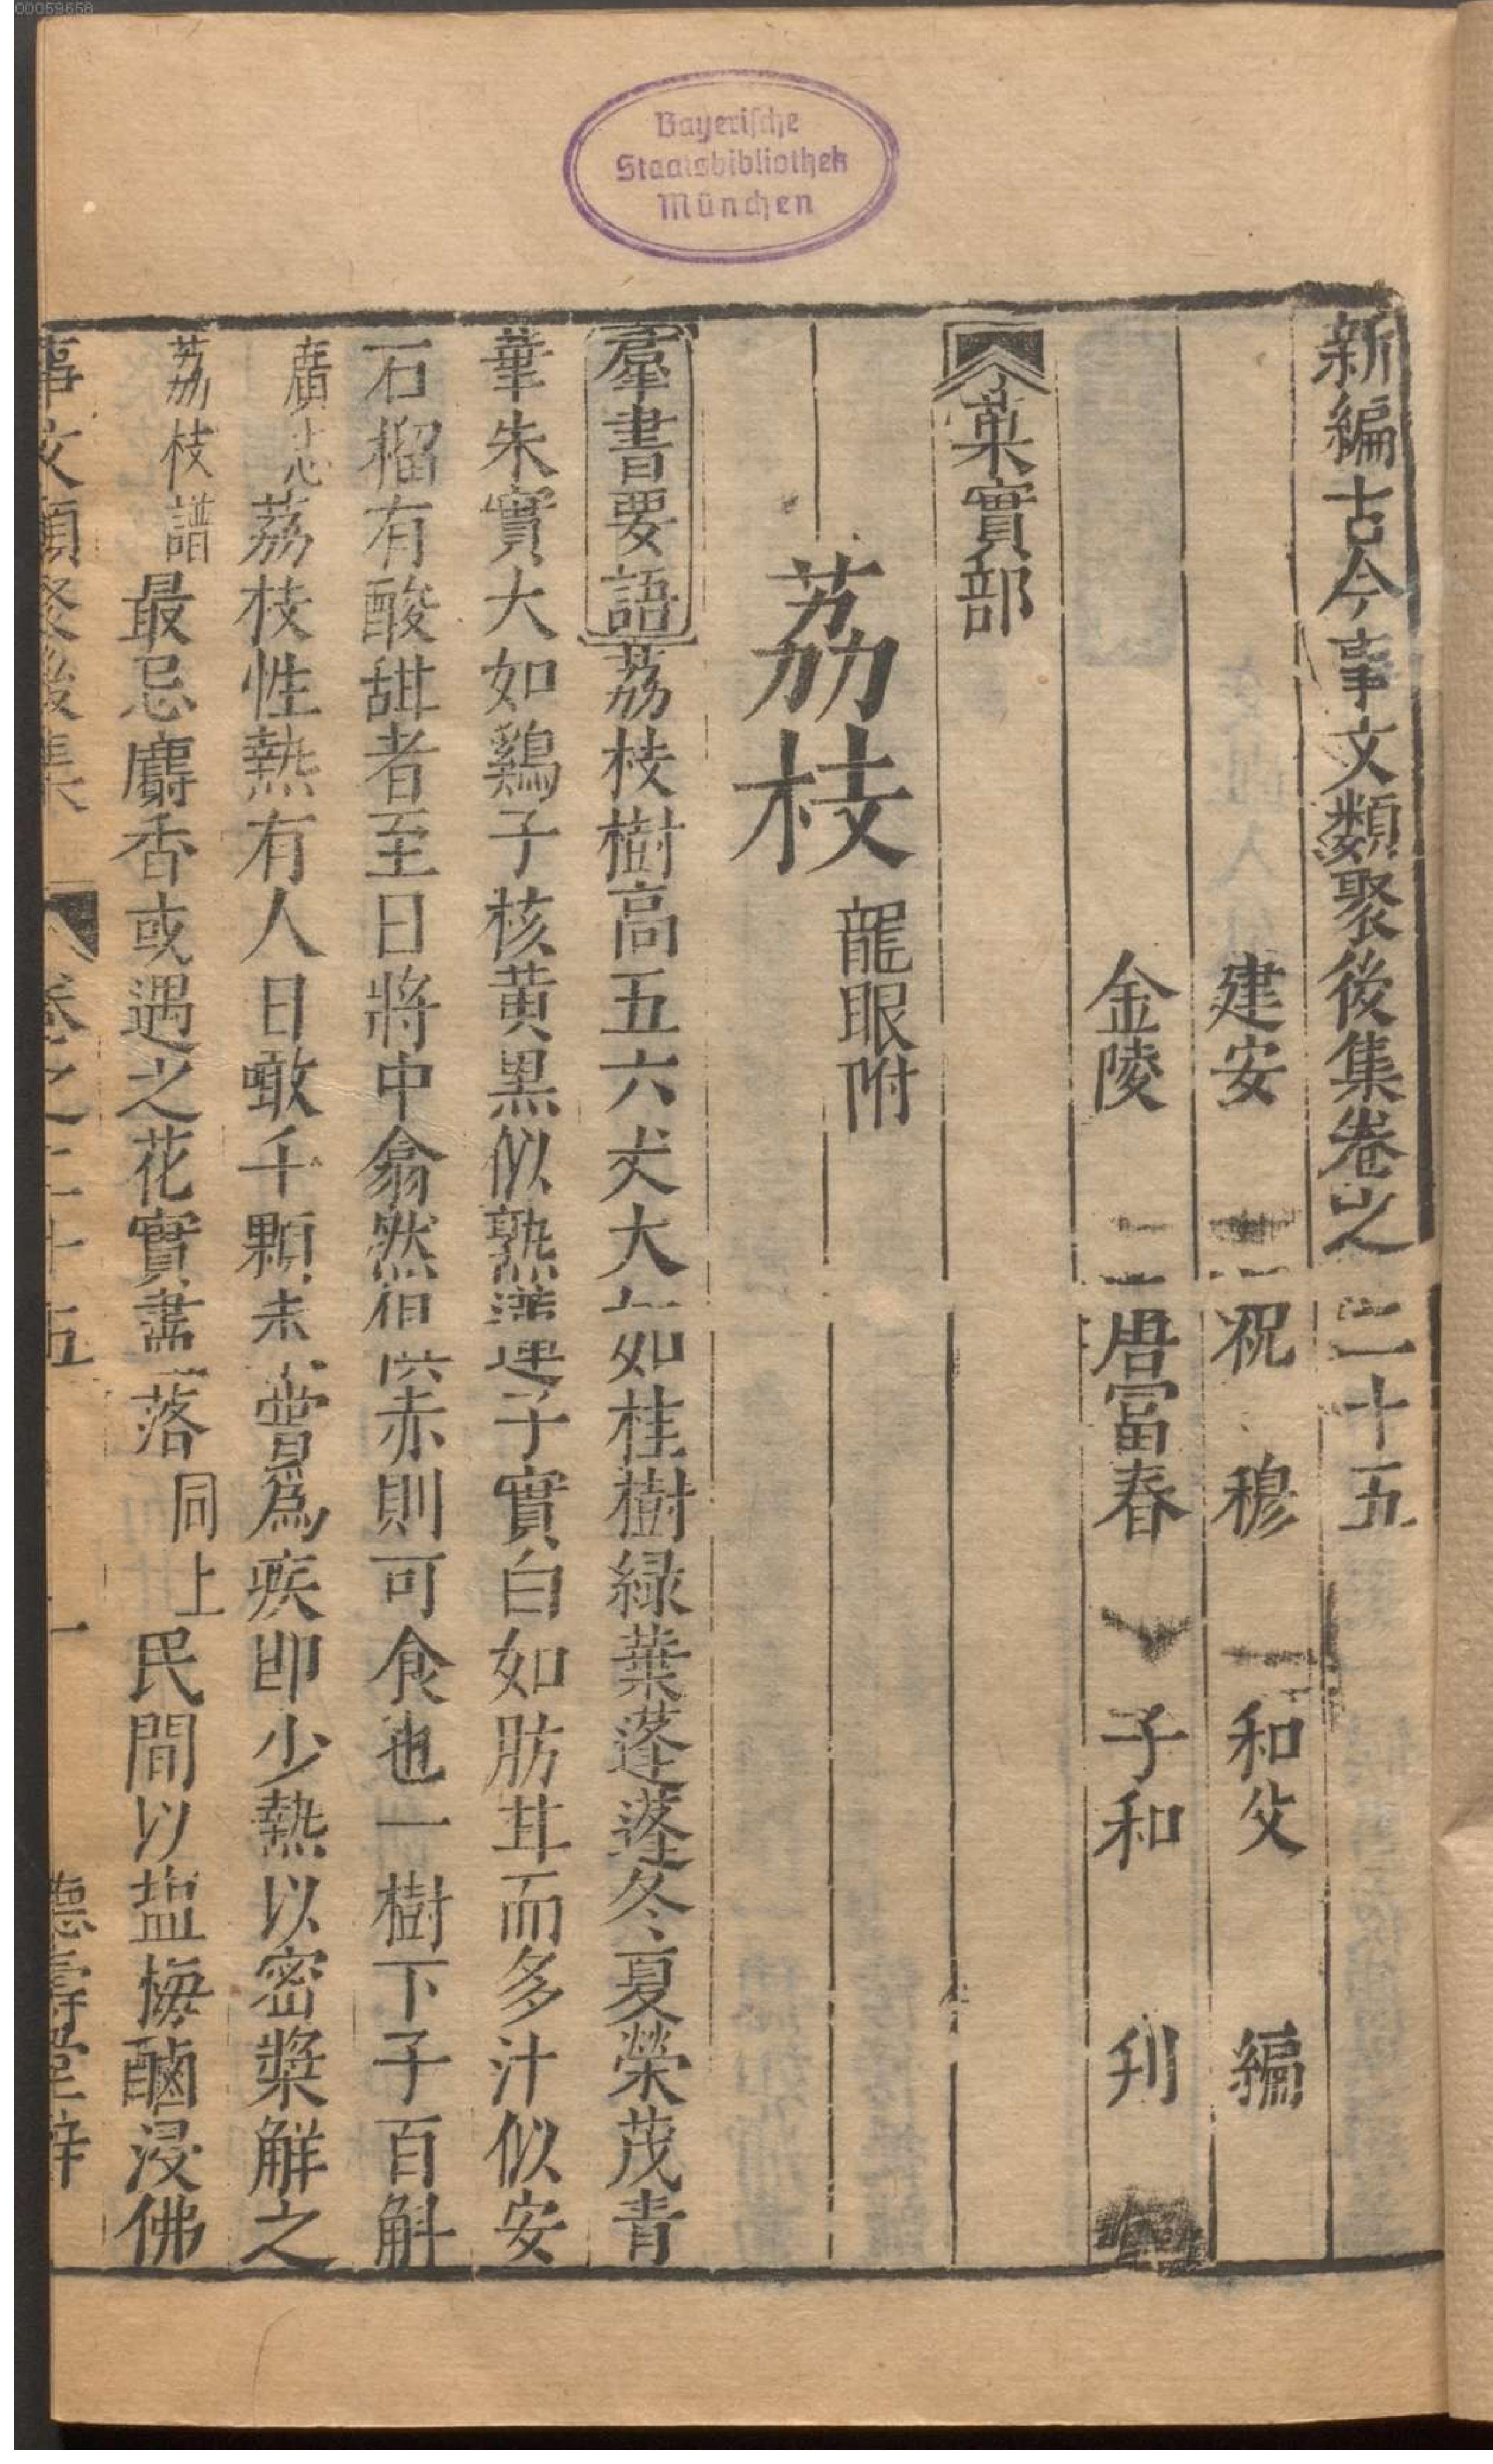 00059658
Bayerische
Staatsbibliothek
München
新編古今事文類聚後集卷之二十五
建安 祝 穆 和父 編
金陵 唐富春 子和 刋
菓實部
荔枝 龍眼附
羣書要語 荔枝樹高五六丈大如桂樹緑葉蓬蓬冬夏榮茂青
華朱實大如鷄子核黄黒似熟蓮子實白如肪甘而多汁似安
石榴有酸甜者至日將中翕然俱赤則可食也一樹下子百斛
廣志 荔枝性熱有人日噉千顆未嘗爲疾即少熱以密漿解之
荔枝譜 最忌麝香或遇之花實盡落 同上 民間以盐梅鹵浸佛
事文類聚後集 卷之二十五 一 德壽堂梓